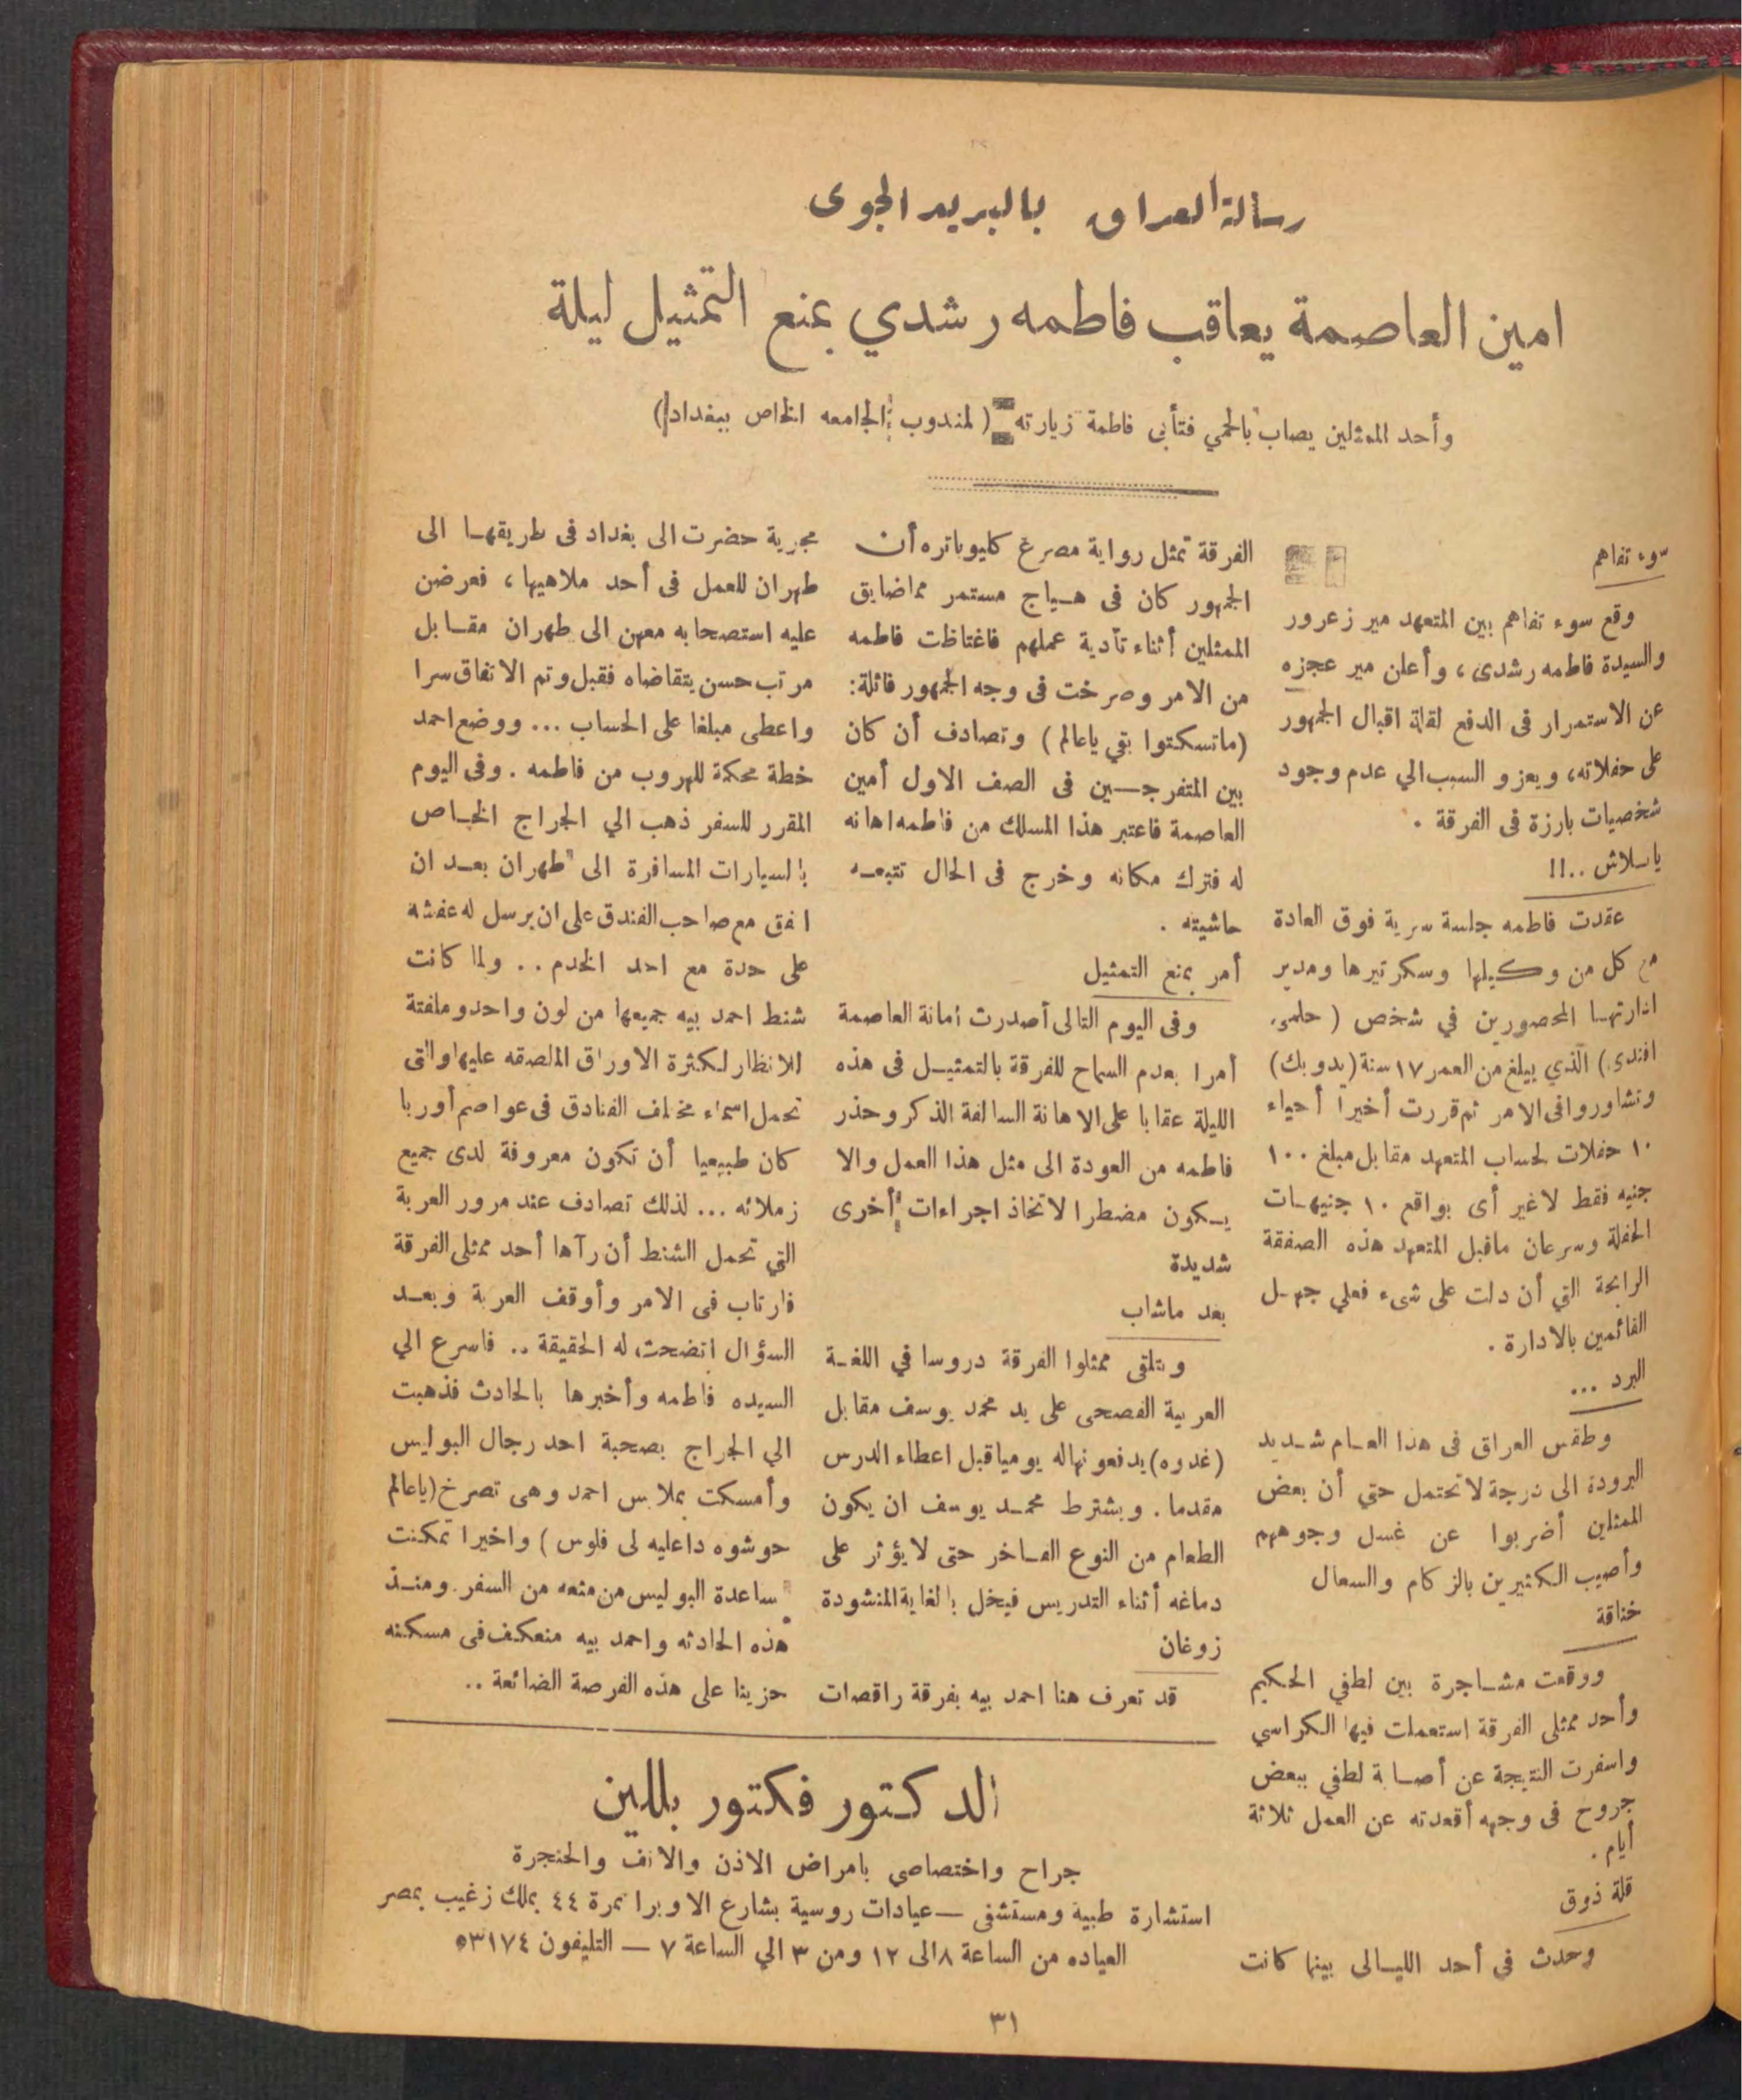 رسالة العراق بالبريد الجوى
امين العاصمة يعاقب فاطمه رشدي بمنع التمثيل ليلة
وأحد الممثلين يصاب بالحمي فتأبى فاطمة زيارته (لمندوب الجامعه الخاص ببغداد)
سوء تفاهم
وقع سوء تفاهم بين المتعهد مير زعرور
والسيدة فاطمه رشدى ، وأعلن مير عجزه
عن الاستمرار فى الدفع لقلة اقبال الجمهور
على حفلاته ، ويعزو السبب الي عدم وجود
شخصيات بارزة فى الفرقة .
يا سلاش ..!!
عقدت فاطمه جلسة سرية فوق العادة
مع كل من وكيلها وسكرتيرها ومدير
ادارتها المحصورين في شخص ( حلمى
افندى ) الذي يبلغ من العمر ١٧ سنة ( يدوبك )
وتشاوروا فى الامر ثم قررت أخيرا أحياء
١٠ حفلات لحساب المتعهد مقابل مبلغ ١٠٠
جنيه فقط لاغير أى بواقع ١٠ جنيهات
الحفلة وسرعان ماقبل المتعهد هذه الصفقة
الرابحة التي أن دلت على شىء فعلي جهل
القائمين بالادارة .
البرد ...
وطقس العراق فى هذا العام شديد
البرودة الى درجة لاتحتمل حتي أن بعض
الممثلين أضربوا عن غسل وجوههم
وأصيب الكثيرين بالزكام والسعال
خناقة
ووقعت مشاجرة بين لطفي الحكيم
وأحد ممثلى الفرقة استعملت فيها الكراسي
واسفرت النتيجة عن أصابة لطفي ببعض
جروح فى وجهه أقعدته عن العمل ثلاثة
أيام .
قلة ذوق
وحدث في أحد الليالى بينما كانت
الفرقة تمثل رواية مصرع كليوباتره أن
الجمهور كان فى هياج مستمر مماضايق
الممثلين أثناء تأدية عملهم فاغتاظت فاطمه
من الامر وصرخت فى وجه الجمهور قائلة:
(ماتسكتوا بقي ياعالم ) وتصادف أن كان
بين المتفرجين فى الصف الاول أمين
العاصمة فاعتبر هذا المسلك من فاطمه اهانه
له فترك مكانه وخرج فى الحال تتبعه
حاشيته .
أمر بمنع التمثيل
وفى اليوم التالى أصدرت أمانة العاصمة
أمرا بعدم السماح للفرقة بالتمثيل فى هذه
الليلة عقابا على الاهانة السالفة الذكر وحذر
فاطمه من العودة الى مثل هذا العمل والا
يكون مضطرا لاتخاذ اجراءات أخرى
شديدة
بعد ماشاب
ويتلقى ممثلوا الفرقة دروسا في اللغة
العربية الفصحى على يد محمد يوسف مقابل
(غدوه) يدفعونها له يوميا قبل اعطاء الدرس
مقدما . ويشترط محمد يوسف ان يكون
الطعام من النوع الفاخر حتى لايؤثر على
دماغه أثناء التدريس فيخل بالغاية المنشودة
زوغان
قد تعرف هنا احمد بيه بفرقة راقصات
مجرية حضرت الى بغداد فى طريقها الى
طهران للعمل فى أحد ملاهيها ، فعرضن
عليه استصحابه معهن الى طهران مقابل
مرتب حسن يتقاضاه فقبل وتم الاتفاق سرا
واعطى مبلغا على الحساب ... ووضع احمد
خطة محكمة للهروب من فاطمه . وفى اليوم
المقرر للسفر ذهب الي الجراج الخاص
بالسيارات المسافرة الى طهران بعد ان
اتفق مع صاحب الفندق على ان يرسل له عفشه
على حدة مع احد الخدم .. ولما كانت
شنط احمد بيه جميعها من لون واحد وملفتة
للانظار لكثرة الاوراق الملصقه عليها والتى
تحمل اسماء مختلف الفنادق فى عواصم أوربا
كان طبيعيا أن تكون معروفة لدى جميع
زملائه ... لذلك تصادف عند مرور العربة
التي تحمل الشنط أن رآها أحد ممثلى الفرقة
فارتاب فى الامر وأوقف العربة وبعد
السؤال اتضحت له الحقيقة .. فاسرع الي
السيده فاطمه وأخبرها بالحادث فذهبت
الي الجراج بصحبة احد رجال البوليس
وأمسكت بملابس احمد وهى تصرخ (ياعالم
حوشوه داعليه لى فلوس ) واخيرا تمكنت
بمساعدة البوليس من منعه من السفر . ومنذ
هذه الحادثه واحمد بيه منعكف فى مسكنه
حزينا على هذه الفرصة الضائعة ..
الدكتور فكتور بللين
جراح واختصاصي بامراض الاذن والانف والحنجرة
استشارة طبية ومستشفى — عيادات روسية بشارع الاوبرا نمرة ٤٤ بملك زغيب بمصر
العياده من الساعة ٨ الى ١٢ ومن ٣ الي الساعة ٧ — التليفون ٥٣١٧٤
٣١